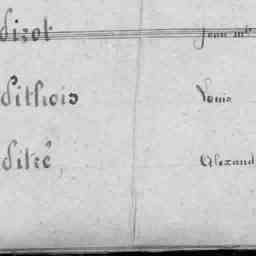 dizot Jean mte
dithois Louis
ditré Alexand